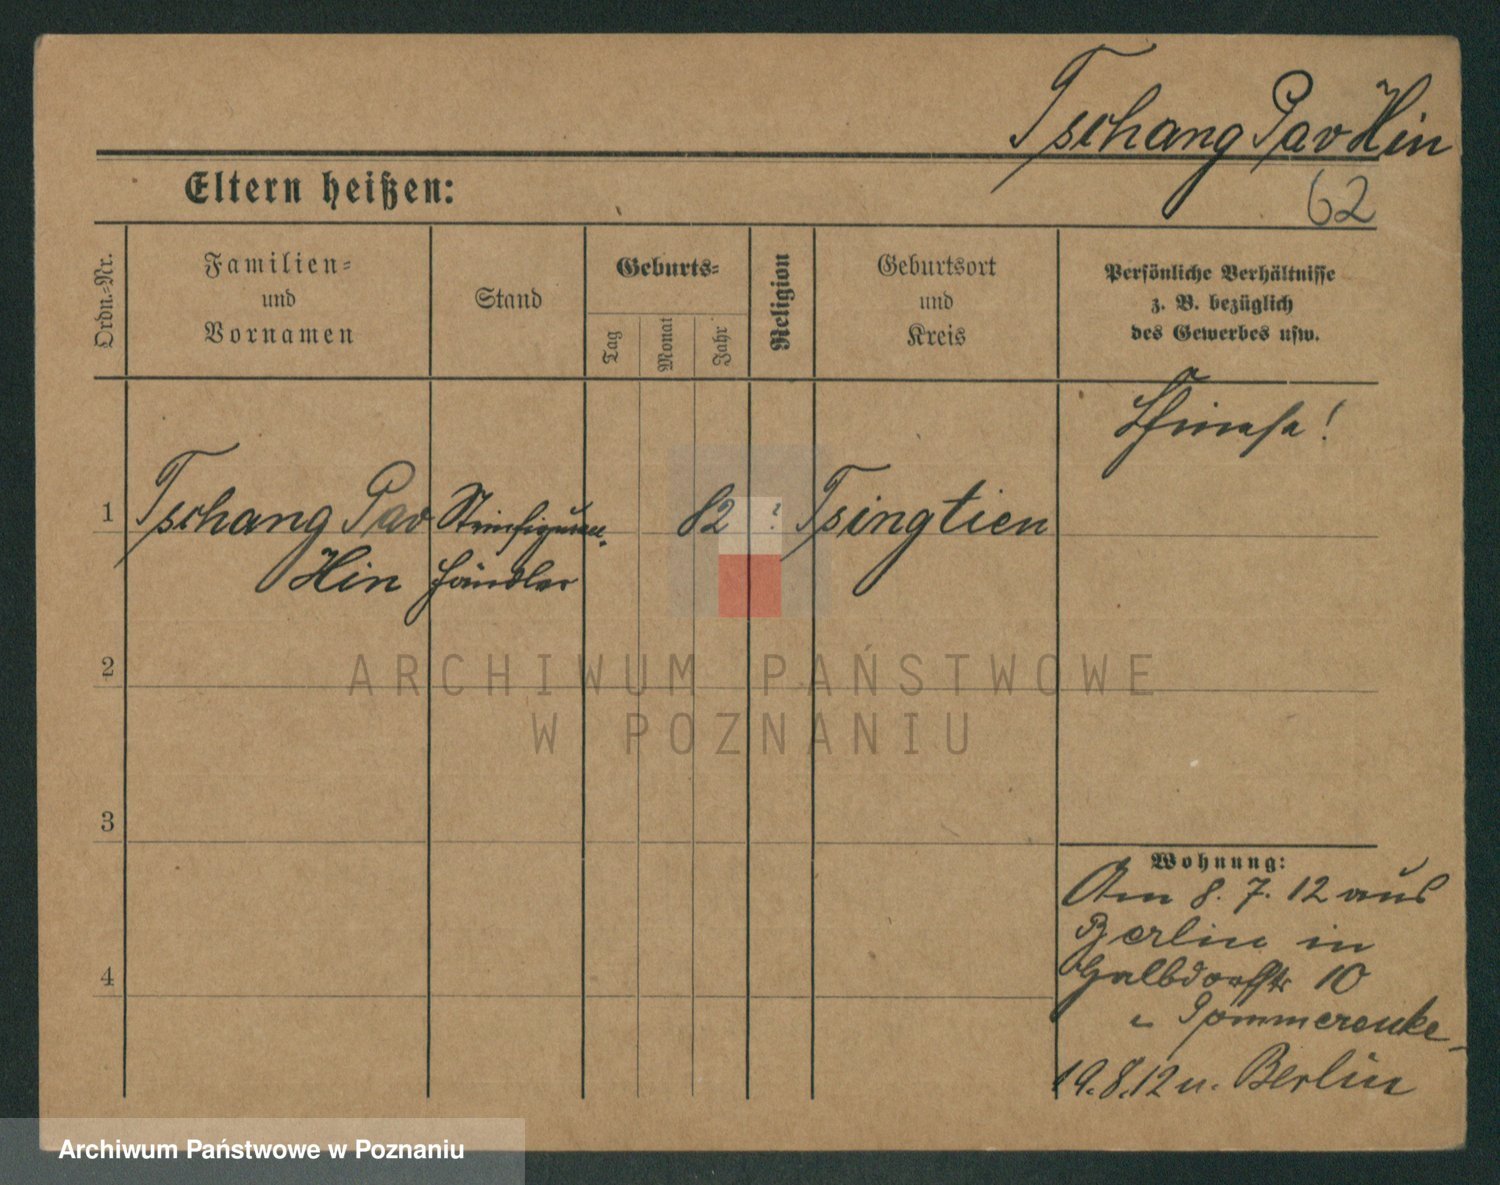 Tschang Pav Hin
Eltern heißen:
62
Ordn.-Nr.
Familien-
und
Vornamen
Stand
Geburts-
Tag
Monat
Jahr
Religion
Geburtsort
und
Kreis
Persönliche Verhältnisse
z. B. bezüglich
des Gewerbes usw.
Chinese!
1
Tschang Pav
Hin
Steinfiguren-
händler
82
?
Tsingtien
2
ARCHIWUM PAŃSTWOWE
W POZNANIU
3
Wohnung:
Am 8. 7. 12 aus
Berlin in
10
Pommerenke
19.8.12 n. Berlin
4
Archiwum Państwowe w Poznaniu